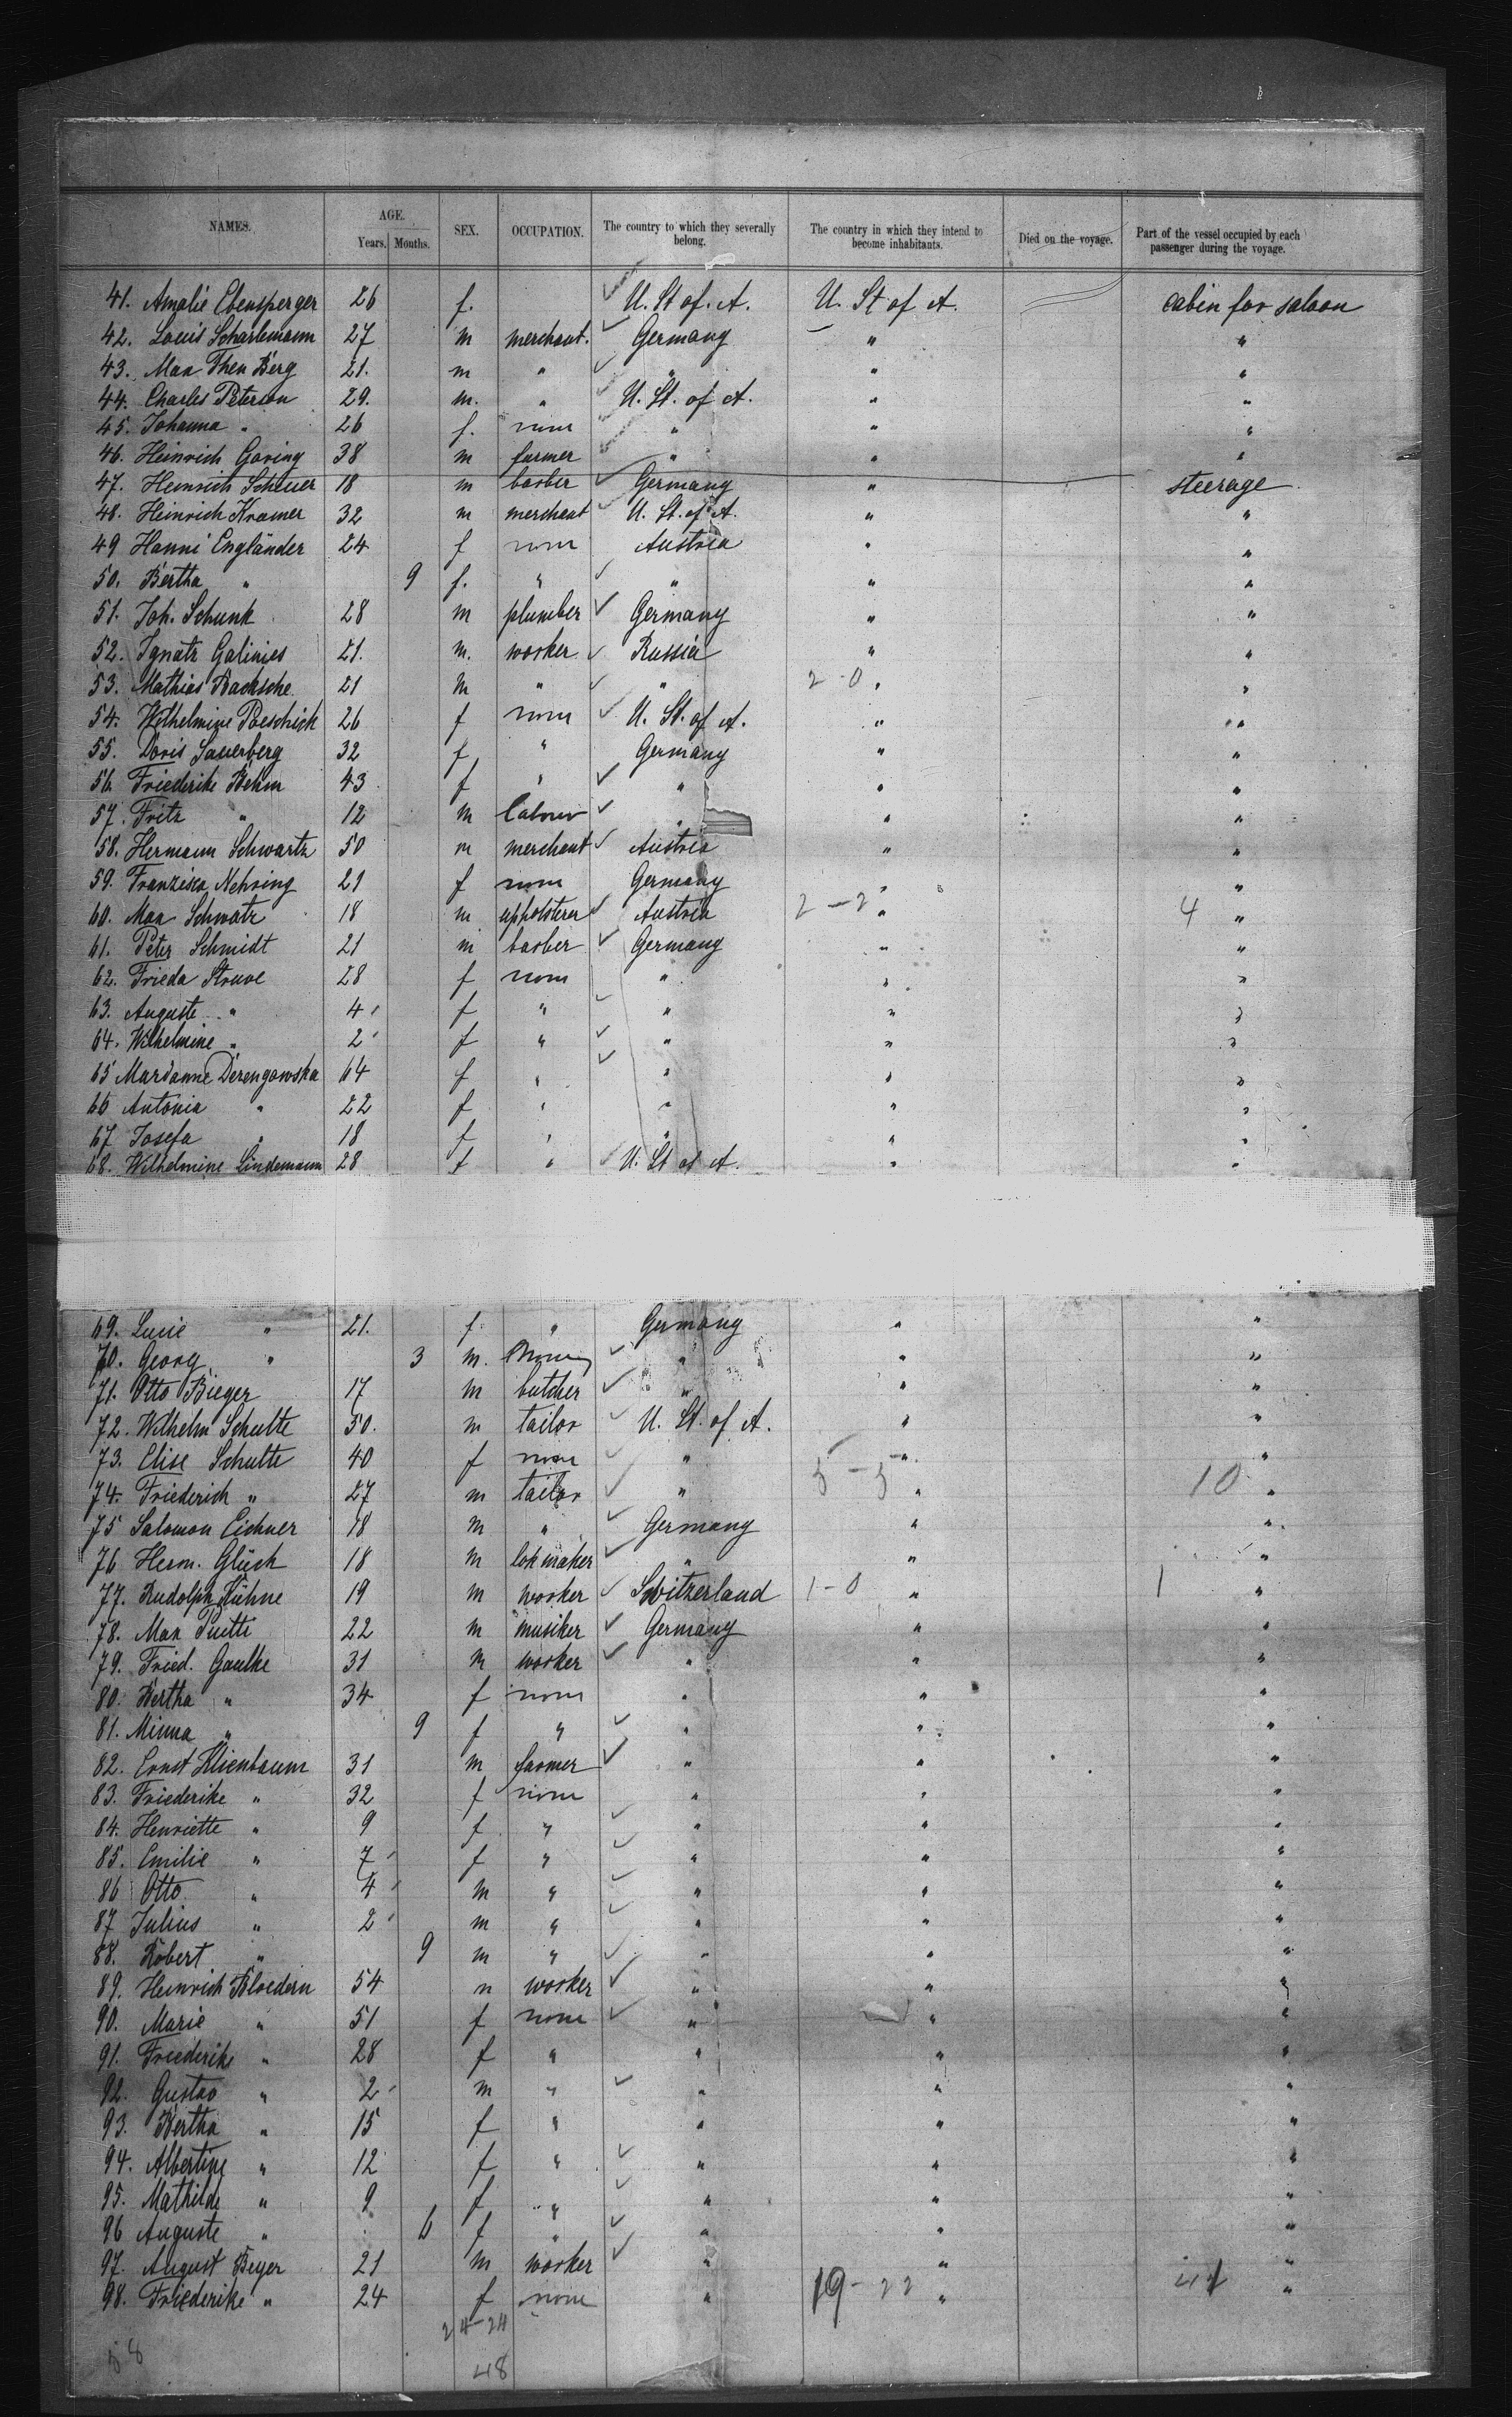 NAMES. AGE. Years. Months. SEX. OCCUPATION. The country to which they severally belong. The country in which they intend to become inhabitants. Died on the voyage. Part of the vessel occupied by each passenger during the voyage.
41. Amalie Ebensperger 26 f. U. St of. A. U. St of A. cabin for saloon
42. Louis Scharlemann 27 m merchant. Germany " "
43. Max Then Berg 21. m " " " "
44. Charles Peterson 29. m. " U. St. of A. " "
45. Johanna " 26 f. none " " "
46. Heinrich Goring 38 m farmer " " "
47. Heinrich Scheuer 18 m barber Germany " steerage
48. Heinrich Kramer 32 m merchant U. St. of A. " "
49 Hanni Engländer 24 f none Austria " "
50. Bertha " 9 f. " " " "
51. Joh. Schunk 28 m plumber Germany " "
52. Ignatz Galinies 21. m. worker Russia " "
53. Mathias 21 m " " 2-0 " "
54. Wilhelmine Poeschick 26 f none U. St. of A. " "
55. Doris Sauerberg 32 f " Germany " "
56. Friederike Behm 43 f " " " "
57. Fritz " 12 m labour " " "
58. Hermann Schwartz 50 m merchant Austria " "
59. Franziska Nehring 21 f none Germany " "
60. Max Schwatz 18 m upholsterer Austria 2-2 " 4 "
61. Peter Schmidt 21 m barber Germany " "
62. Frieda Struve 28 f none " " "
63. Auguste " 4 f " " " "
64. Wilhelmine " 2 f " " " "
65 Marianne Derengowska 64 f " " " "
66 Antonia " 22 f " " " "
67 Josefa " 18 f " " " "
68. Wilhelmine Lindemann 28 f " U. St of A. " "
69. Lucie " 21. f. " Germany " "
70. Georg " 3 m. none " " "
71. Otto Bieger 17 m butcher " " "
72. Wilhelm Schulte 50. m tailor U. St. of A. " "
73. Elise Schulte 40 f none " " "
74. Friederich " 27 m tailor " 5-5 " 10 "
75 Salomon Eichner 18 m " Germany " "
76 Herm. Glück 18 m lokmaker " " "
77. Rudolph Kühne 19 m worker Switzerland 1-0 " 1 "
78. Max Putti 22 m musiker Germany " "
79. Fried. Gaulke 31 m worker " " "
80. Bertha " 34 f none " " "
81. Minna " 9 f " " " "
82. Ernst Klienbaum 31 m farmer " " "
83. Friederike " 32 f none " " "
84. Henriette " 9 f " " " "
85. Emilie " 7 f " " " "
86 Otto " 4 m " " " "
87 Julius " 2 m " " " "
88. Robert " 9 m " " " "
89. Heinrich Bloedern 54 m worker " " "
90. Marie " 51 f none " " "
91. Friederike " 28 f " " " "
92. Gustav " 2 m " " " "
93. Bertha " 15 f " " " "
94. Albertine " 12 f " " " "
95. Mathilde " 9 f " " " "
96 Auguste " 6 f " " " "
97. August Beyer 21 m worker " " "
98. Friederike " 24 f none " 19-22 " 41 "
24-24
58 48